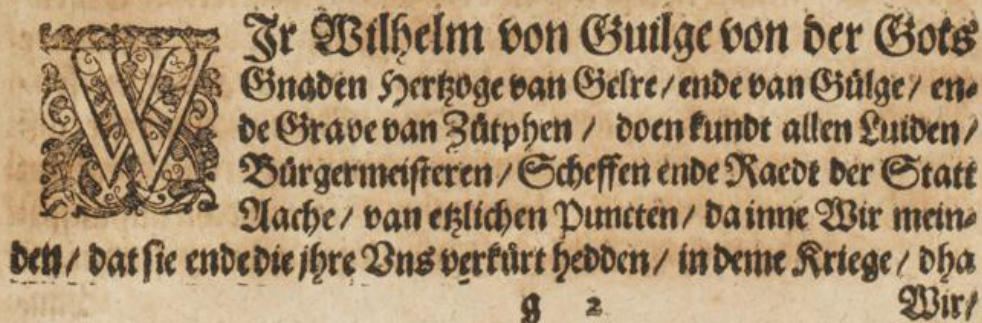 WJr Wilhelm von Guilge von der Gots
Gnaden Hertzoge van Gelre / ende van Gülge / en-
de Grave van Zütphen / doen kundt allen Luiden /
Bürgermeisteren / Scheffen ende Raedt der Statt
Aache / van etzlichen Puncten / da inne Wir mein-
den / dat sie ende die jhre Vns verkürt hedden / in deme Kriege / dha
g 2 Wir /